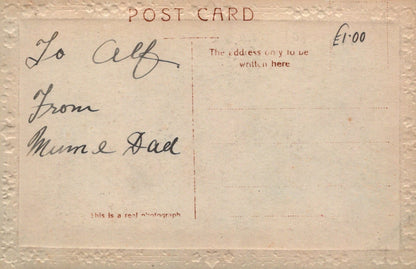 POST CARD
£1·00
To Alf
From
Mum & Dad
The address only to be
written here
This is a real photograph